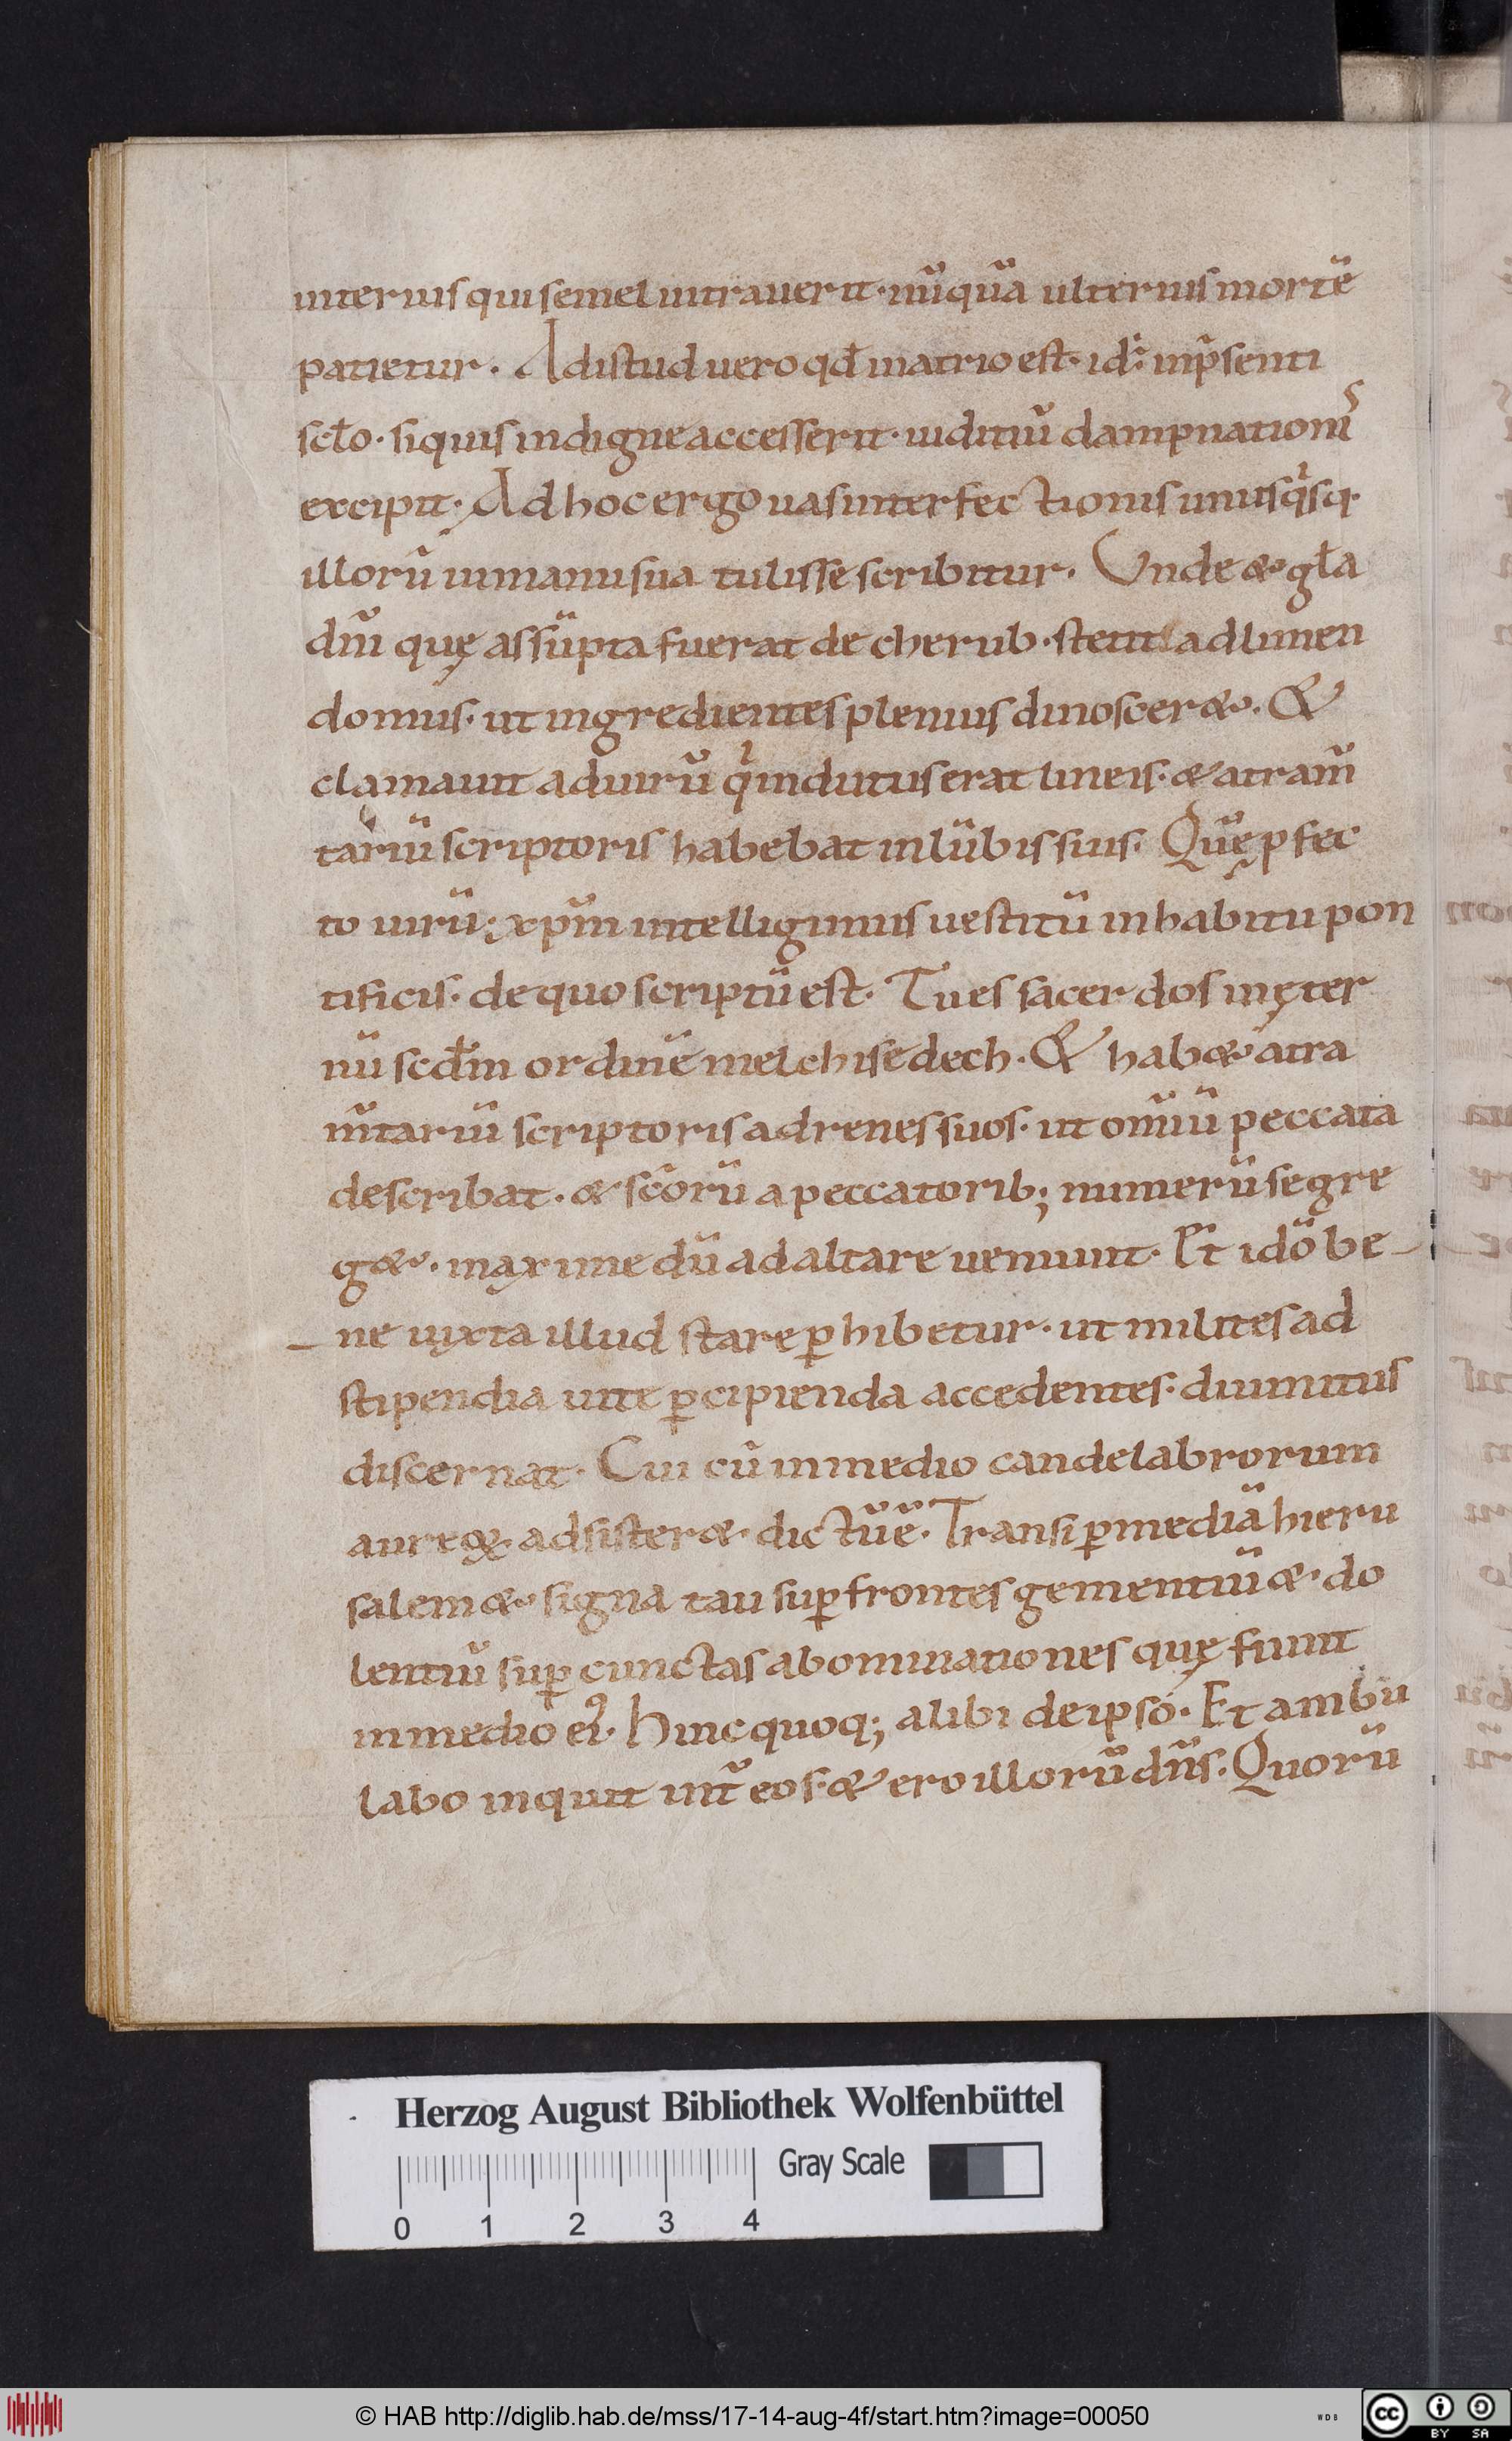 interius qui semel intrauerit· nūquā ulterius mortē
patietur. Ad istud uero qđ in atrio est· id: in p̄senti
scło· siquis indigne accesserit· iuditiū dampnationis
excipit· Ad hoc ergo uas interfectionis unusqisq·
illorū in manu sua tulisse scribitur. Vnde & gła
dn̄i quę assūpta fuerat de cherub· stetit ad limen
domus· ut ingredientes plenius dinoscer&. &
clamauit ad uirū qi indutus erat lineis· & atram̄
tariū scriptoris habebat in lūbis suis. Quē p fec
to uirū; xp̄m intelligimus uestitū in habitu pon
tificis. de quo scriptū est. Tu es sacerdos in ęter
nū scđm ordinē melchisedech. & hab& atra
m̄tariū scriptoris ad renes suos· ut om̄iū peccata
describat. & sc̄orū a peccatorib; numerū segre
g&. maxime dū ad altare ueniunt. Et idō be-
-ne iuxta illud stare ꝑhibetur· ut milites ad
stipendia uite ꝑcipienda accedentes· diuinitus
discernat. Cui cū in medio candelabrorum
aureoꝝ adsister&· dictū ē. Transi ꝑ mediā hieru
salem &· signa tau suꝑ frontes gementiū &· do
lentiū suꝑ cunctas abominationes quę fiunt
in medio ei9. Hinc quoq; alibi de ipso. Et ambu
labo inquit int̄ eos· & ero illorū dn̄s. Quorū
Herzog August Bibliothek Wolfenbüttel
Gray Scale
0 1 2 3 4
© HAB http://diglib.hab.de/mss/17-14-aug-4f/start.htm?image=00050
WDB
CC BY SA